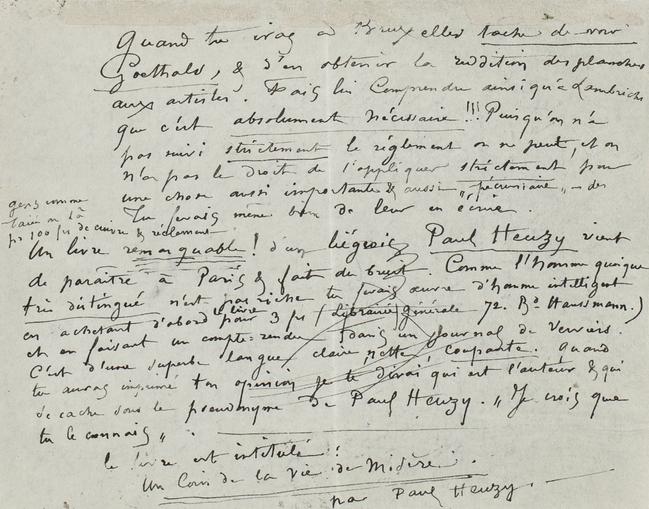 Quand tu iras à Bruxelles tache de voir
Goethals, & d'en obtenir la reddition des planches
aux artistes. Fais lui comprendre ainsi qu'a Lambrichs
que c'est absolument nécessaire!!! Puisqu'on n'a
pas suivi strictement le règlement on ne peut, et on
n'a pas le droit de l'appliquer strictement pour
une chose aussi importante & aussi „pécuniaire„ — des
gens comme
Tu ferais même bien de leur en écrire.
pr 100 frs de cuivre & règlement
Un livre remarquable! d'un liégeois Paul Heuzy vient
de paraître à Paris & fait du bruit. Comme l'homme quoique
très distingué n'est pas riche tu ferais œuvre d'homme intelligent
en achetant d'abord le livre pour 3 frs (Librairie générale 72. Bd Haussmann.)
et en faisant un compte-rendu dans un Journal de Verviers.
C'est d'une superbe langue, claire, nette, coupante. Quand
tu auras imprimé ton opinion je te dirai qui est l'auteur & qui
se cache sous le pseudonyme de Paul Heuzy. „Je crois que
tu le connais„
le livre est intitulé:
Un Coin de la Vie de Misère.
par Paul Heuzy.